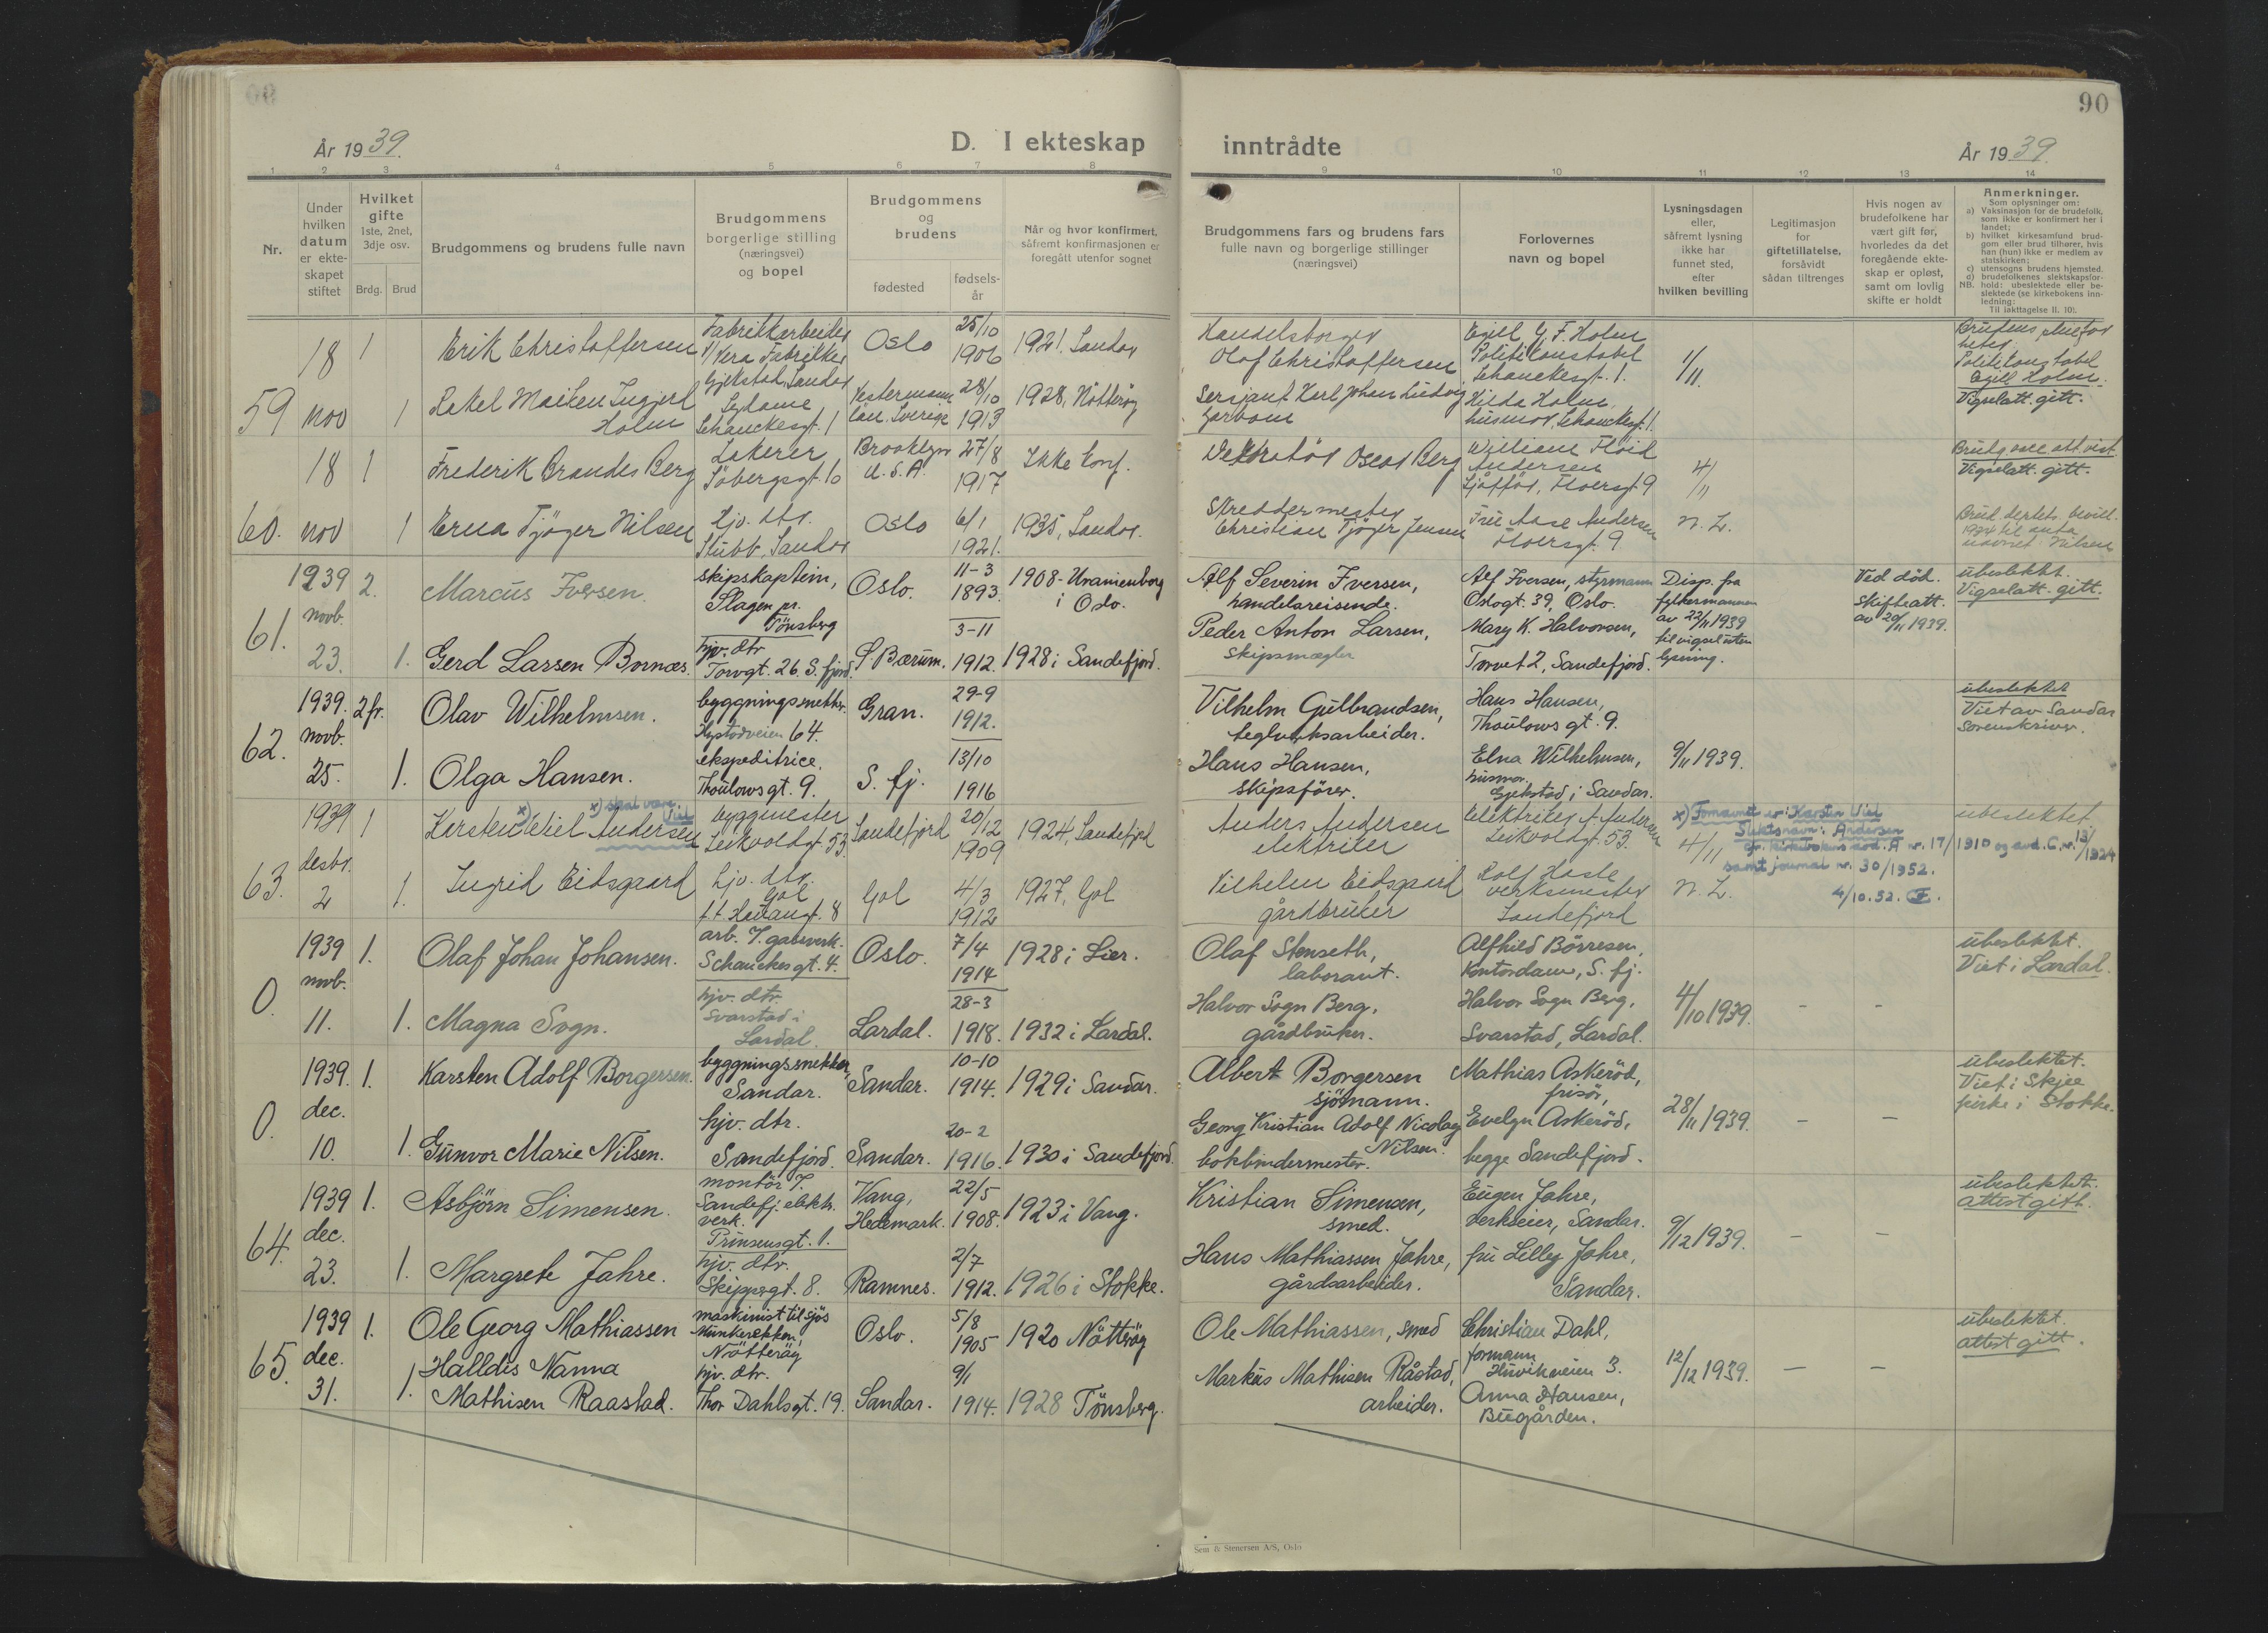 90
År 1939.
D. I ekteskap
inntrådte
År 1939.
1 2 3 4 5 6 7 8 9 10 11 12 13 14
Nr.
Under hvilken datum er ekteskapet stiftet
Hvilket gifte 1ste, 2net, 3dje osv.
Brdg. Brud
Brudgommens og brudens fulle navn
Brudgommens borgerlige stilling (næringsvei) og bopel
Brudgommens og brudens
fødested
fødselsår
Når og hvor konfirmert, såfremt konfirmasjonen er foregått utenfor sognet
Brudgommens fars og brudens fars fulle navn og borgerlige stillinger (næringsvei)
Forlovernes navn og bopel
Lysningsdagen eller, såfremt lysning ikke har funnet sted, efter hvilken bevilling
Legitimasjon for giftetillatelse, forsåvidt sådan tiltrenges
Hvis nogen av brudefolkene har vært gift før, hvorledes da det foregående ekteskap er opløst, samt om lovlig skifte er holdt
Anmerkninger.
Som oplysninger om:
a) Vaksinasjon for de brudefolk, som ikke er konfirmert her i landet;
b) hvilket kirkesamfund brudgom eller brud tilhører, hvis han (hun) ikke er medlem av statskirken;
c) utensogns brudens hjemsted.
d) brudefolkenes slektskapsforhold: ubeslektede eller beslektede (se kirkebokens innledning:
NB. Til iakttagelse II. 10).
59 18 nov
1 Erik Christoffersen Fabrikkarbeider v/ Vera Fabrikker Gjekstad, Sandar Oslo 25/10 1906 1921. Sandar
Handelsborger Olaf Christoffersen Egill G. F. Holm Politikonstabel Schanckesgt. 1. 1/11.
Politikonstabel Egill Holm. Vigselatt. gitt.
1 Rakel Maiken Ingjerd Holm Sydame Schanckesgt. 1 28/10 1913 1928, Nøtterøy
Sersjant Karl Johan Ludvig Hilda Holm, husmor, Schanckesgt. 1.
60. 18 nov
1 Frederik Brandes Berg Lakerer Söbergsgt. 10 Brooklyn U.S.A. 27/8 1917 Ikke konf.
Oscar Berg William Floid Andersen 9 4/11
Vigselatt. gitt.
1 Erna Tjöger Nilsen Hjv. dtr. Stubb, Sandar Oslo 6/1 1921. 1935, Sandar.
Skreddermester Christian Tjöger Jensen Fru Aase Andersen 9 N. L.
61. 1939 novb. 23.
2. Marcus Iversen. skipskaptein, Slagen pr. Tönsberg Oslo. 11-3 1893. 1908 - Uranienborg i Oslo.
Alf Severin Iversen, handelsreisende. Alf Iversen, styrmann Oslogt. 39, Oslo. Disp. fra fylkesmannen av 22/11 1939 til vigsel uten lysning.
Ved död. Skifteatt. av 20/11 1939.
ubeslektet. Vigselatt. gitt.
1. Gerd Larsen Bornæs. hjv. dtr. Torvgt. 26. S. fjord. S. Bærum. 3-11 1912. 1928 i Sandefjord.
Peder Anton Larsen, Skipsmægler Mary K. Halvorsen, Torvet 2, Sandefjord.
62. 1939. novb. 25.
2 fr. Olav Wilhelmsen. byggningsnekker. 64. Gran. 29-9 1912.
Vilhelm Gulbrandsen, teglverksarbeider. Hans Hansen, Thaulows gt. 9.
ubeslektet Viet av Sandar Sorenskriver.
1. Olga Hansen. ekspeditrice. Thaulows gt. 9. S. fj. 13/10 1916
Hans Hansen, skipsfører. Elna Wilhelmsen, husmor. Gjekstad i Sandar. 9/11 1939.
63. 1939 desbr. 2
x) skal være: Viel
1 Karsten x) Wiel Andersen byggmester Leikvoldgt. 53. Sandefjord 20/12 1909 1924, Sandefjord
Anders Andersen elektriker Elektriker A. Andersen Leikvoldgt. 53. 4/11
ubeslektet
x) Fornavnet er: Karsten Viel
Slektsnavn: Andersen
cfr. kirkebokens avd. A nr. 17/1910 og avd. C. nr. 13/1924
samt journal nr. 30/1952.
4/10.52.
1. Ingrid Eidsgaard hjv. dtr. Gol Gol 4/3 1912 1927, Gol
Vilhelm Eidsgaard gårdbruker Rolf Hasle verksmester Sandefjord N. L.
0. 1939 novb. 11.
1. Olaf Johan Johansen. arb. v. gassverk. Schanckesgt. 4. Oslo. 7/4 1914 1928 i Lier.
Olaf Stenseth, laborant. Alfhild Börresen, Kontordame, S. fj. 4/10 1939. - -
ubeslektet. Viet i Lardal.
1. Magna Sogn. hjv. dtr. Svarstad i Lardal. Lardal. 28-3 1918. 1932 i Lardal.
Halvor Sogn Berg, gårdbruker. Halvor Sogn Berg, Svarstad, Lardal.
0. 1939. dec. 10.
1. Karsten Adolf Borgersen. byggningssnekker, Sandar. Sandar. 10-10 1914. 1929 i Sandar.
Albert Borgersen sjömann. Mathias Askeröd, frisör, 28/11 1939. - -
ubeslektet. Viet i Skjee kirke i Stokke.
1. Gunvor Marie Nilsen. hjv. dtr. Sandefjord. Sandar. 20-2 1916. 1930 i Sandefjord.
Georg Kristian Adolf Nicolay Nilsen. bokbindermester. Evelyn Askeröd, begge Sandefjord.
64. 1939 dec. 23.
1. Asbjörn Simensen. montör v. Sandefj. elektr. verk. Prinsensgt. 1. Vang, Hedemark. 22/5 1908. 1923 i Vang.
Kristian Simensen, smed. Eugen Jahre, verkseier, Sandar. 9/12 1939. - -
ubeslektet. attest gitt.
1. Margrete Jahre. hjv. dtr. Skippergt. 8. Ramnes. 2/7 1912. 1926 i Stokke.
Hans Mathiassen Jahre, gårdsarbeider. fru Lilly Jahre, Sandar.
65. 1939 dec. 31.
1. Ole Georg Mathiassen maskinist til sjös Munkerekken, Nötteröy Oslo. 5/8 1905 1920 Nötteröy
Ole Mathiassen, smed Christian Dahl, formann Huvikveien 3. 12/12 1939. - -
ubeslektet. attest gitt.
1. Halldis Nanna Mathisen Raastad. hjv. dtr. Thor Dahlsgt. 19. Sandar. 9/1 1914. 1928 Tönsberg.
Markus Mathisen Råstad, arbeider. Anna Hansen, Bugården.
Sem & Stenersen A/S, Oslo